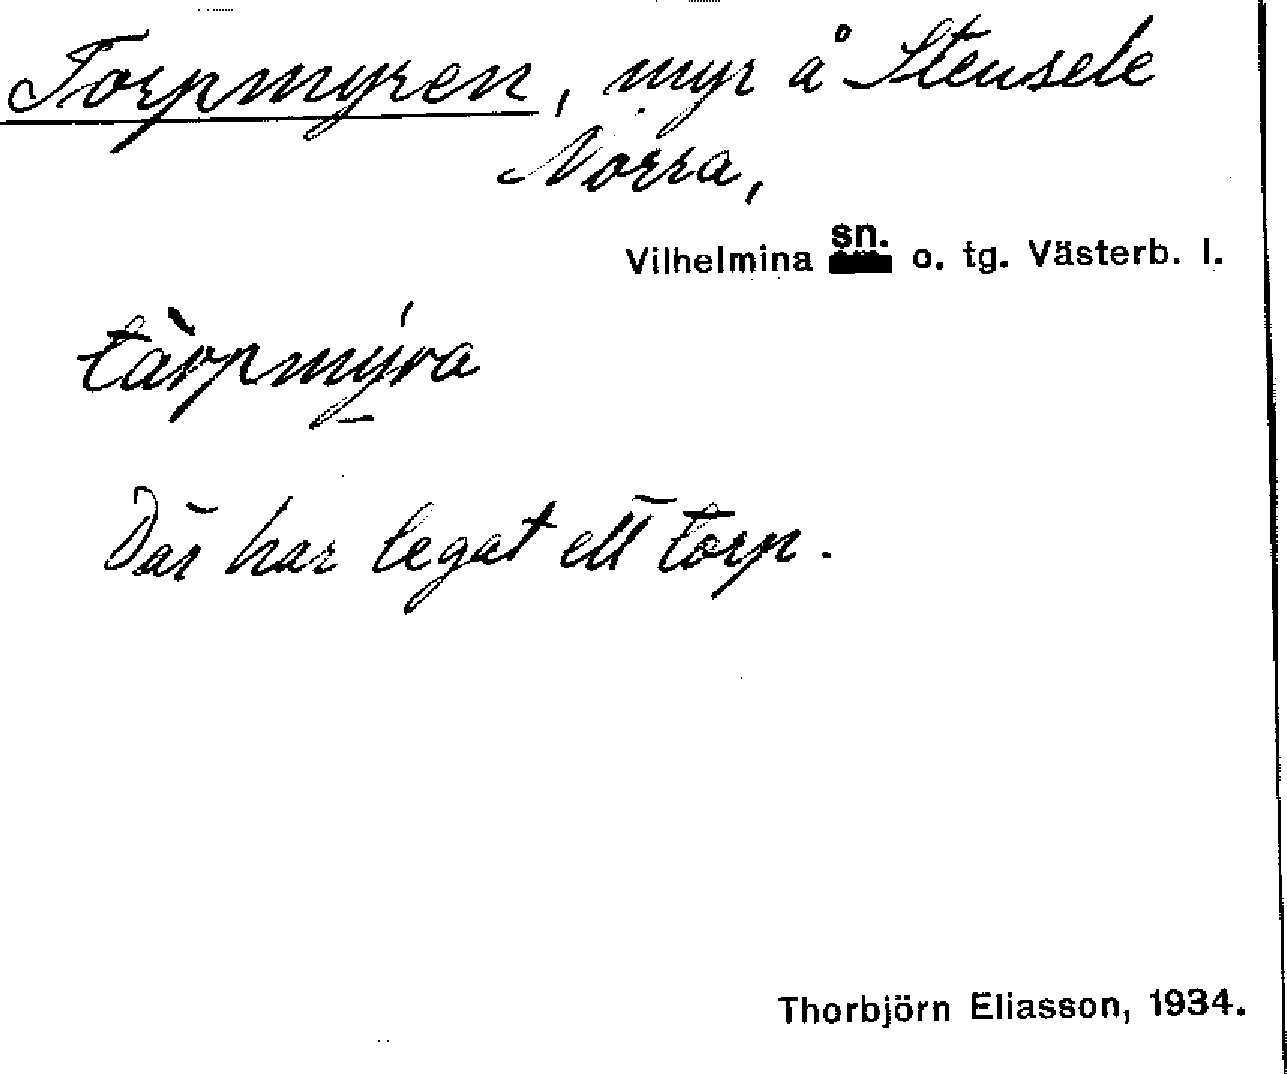 Torpmyren, myr å Stensele
Norra,
Vilhelmina sn. o. tg. Västerb. l.
tàrpmýra
Där har legat ett torp.
Thorbjörn Eliasson, 1934.